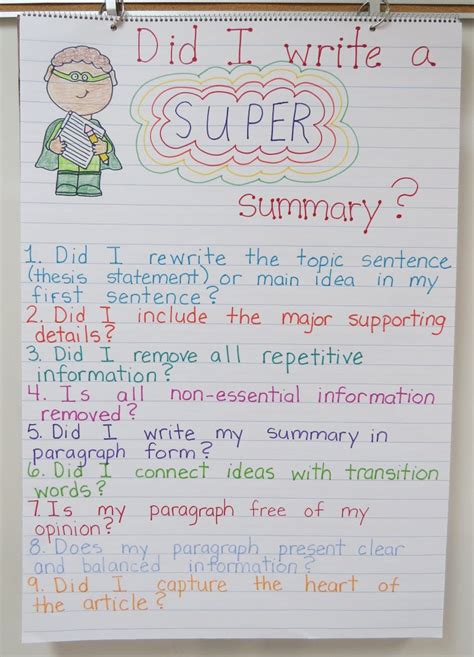 Did I write a
SUPER
summary?
1. Did I rewrite the topic sentence
(thesis statement) or main idea in my
first sentence?
2. Did I include the major supporting
details?
3. Did I remove all repetitive
information?
4. Is all non-essential information
removed?
5. Did I write my summary in
paragraph form?
6. Did I connect ideas with transition
words?
7. Is my paragraph free of my
opinion?
8. Does my paragraph present clear
and balanced information?
9. Did I capture the heart of
the article?